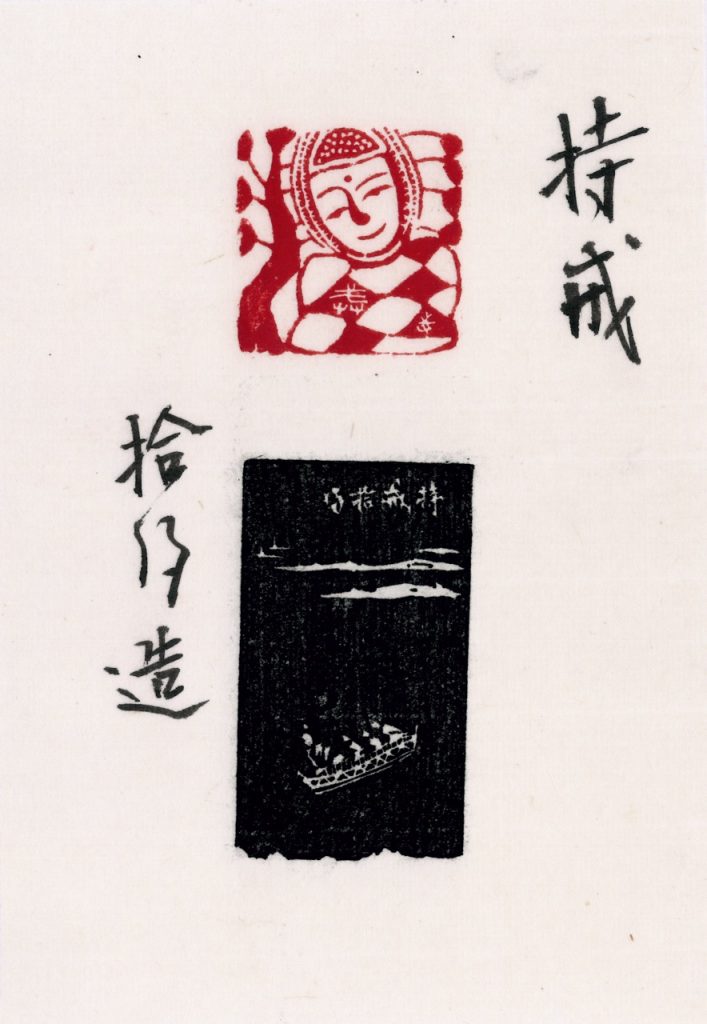 持戒
拾得造
持戒拾得